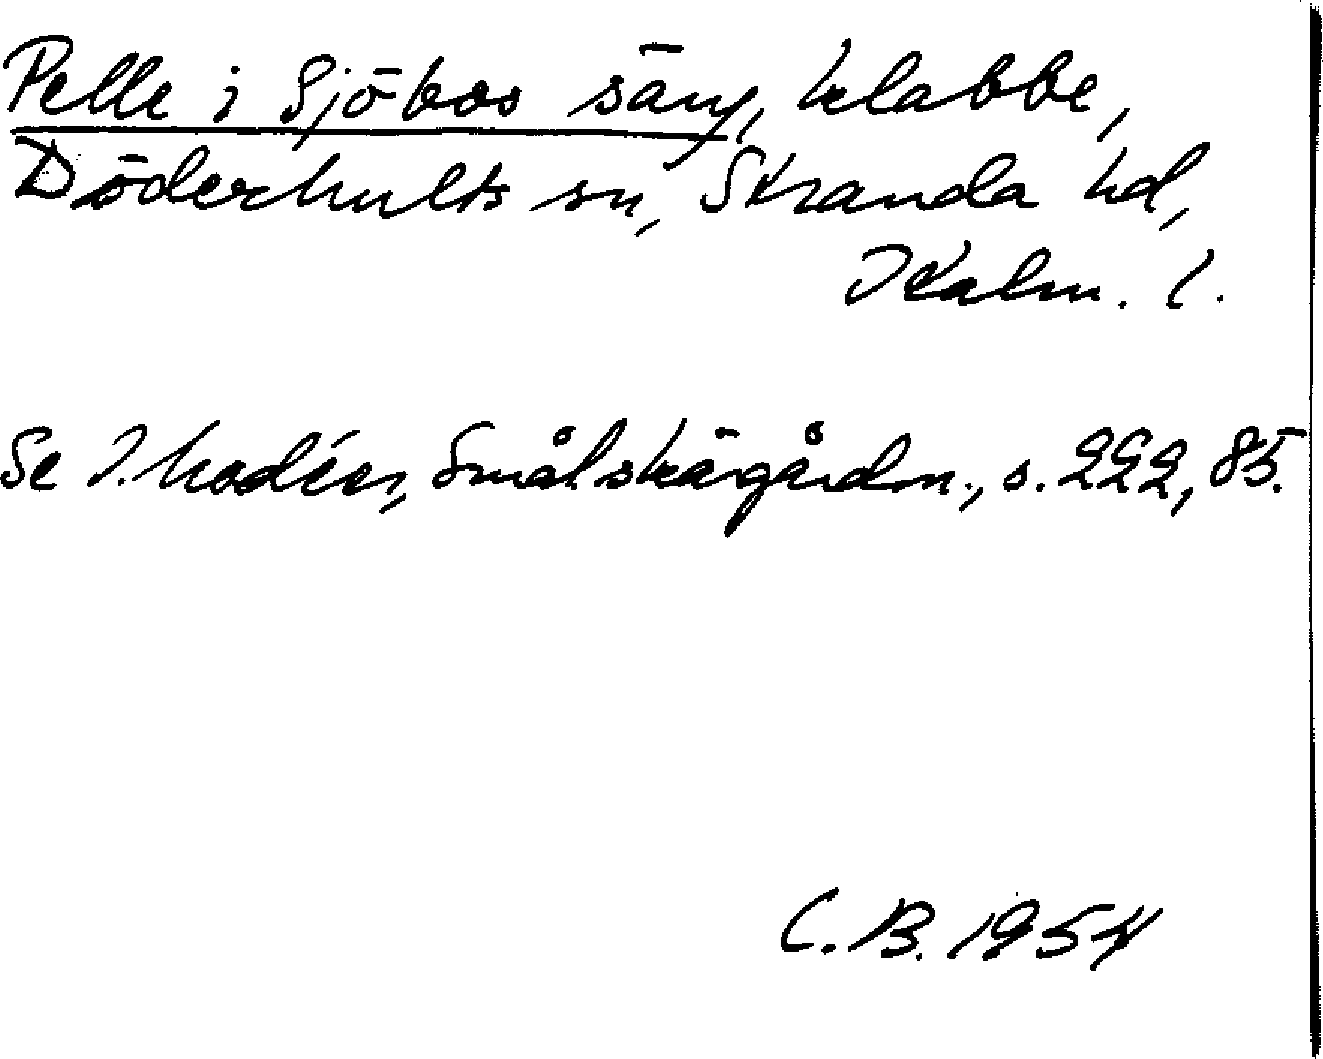 Pelle i Sjöbos säng, klabbe,
Döderhults sn, Stranda hd,
Kalm. l.
Se I. Modéer, Smål skärgårdn., s. 222, 85.
C.B. 1954